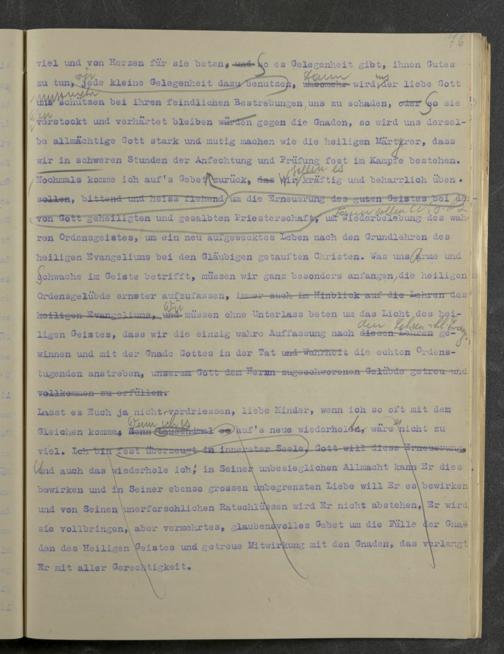 76
viel und von Herzen für sie beten, und so es Gelegenheit gibt, ihnen Gutes
zu tun, jede kleine Gelegenheit dazu benutzen, umsomehr wird der liebe Gott
uns schützen bei ihren feindlichen Bestrebungen uns zu schaden, oder so sie
verstockt und verhärtet bleiben würden gegen die Gnaden, so wird uns dersel-
be allmächtige Gott stark und mutig machen wie die heiligen Märtyrer, dass
wir in schweren Stunden der Anfechtung und Prüfung fest im Kampfe bestehen.
Nochmals komme ich auf's Gebet zurück, das wir kräftig und beharrlich üben
sollen es
sollen, bittend und heiss flehend um die Erneuerung des guten Geistes bei der
von Gott geheiligten und gesalbten Priesterschaft, um Wiederbelebung des wah
ren Ordensgeistes, um ein neu aufgewecktes Leben nach den Grundlehren des
heiligen Evangeliums bei den Gläubigen getauften Christen. Was uns Arme und
Schwache im Geiste betrifft, müssen wir ganz besonders anfangen, die heiligen
Ordensgelübde ernster aufzufassen, immer auch im Hinblick auf die Lehren des
heiligen Evangeliums, und müssen ohne Unterlass beten um das Licht des hei-
Wir
ligen Geistes, dass wir die einzig wahre Auffassung nach diesen Lehren ge-
winnen und mit der Gnade Gottes in der Tat und Wahrheit die echten Ordens-
tugenden anstreben, unserem Gott dem Herrn zugeschworenen Gelübde getreu und
vollkommen zu erfüllen.
Lasst es Euch ja nicht verdriessen, liebe Kinder, wenn ich so oft mit dem
Gleichen komme, denn tausendmal es auf's neue wiederholen, wäre nicht zu
viel. Ich bin fest überzeugt in innerster Seele, Gott will diese Erneuerung
Und auch das wiederhole ich, in Seiner unbesieglichen Allmacht kann Er dies
bewirken und in Seiner ebenso grossen unbegrenzten Liebe will Er es bewirken
und von Seinen unerforschlichen Ratschlüssen wird Er nicht abstehen, Er wird
sie vollbringen, aber vermehrtes, glaubensvolles Gebet um die Fülle der Gna
den des Heiligen Geistes und getreue Mitwirkung mit den Gnaden, das verlangt
Er mit aller Gerechtigkeit.